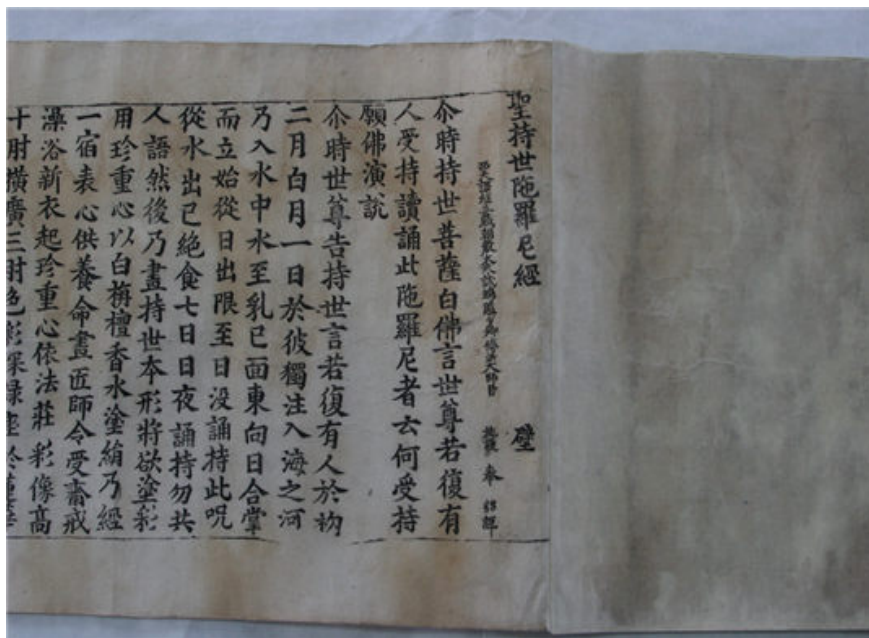 聖持世陁羅尼經 壁
西天譯經三藏朝散大夫試鴻臚少卿傳法大師臣 施護 奉 詔譯
尒時持世菩薩白佛言世尊若復有
人受持讀誦此陁羅尼者云何受持
願佛演說
尒時世尊告持世言若復有人於初
二月白月一日於彼獨注入海之河
乃入水中水至乳已面東向日合掌
而立始從日出限至日没誦持此呪
從水出已絶食七日日夜誦持勿共
人語然後乃畫持世本形將欲塗彩
用珍重心以白栴檀香水塗絹乃經
一宿表心供養命畫匠師令受齋戒
澡浴新衣起珍重心依法莊彩像高
十肘横廣三肘色彩深緑